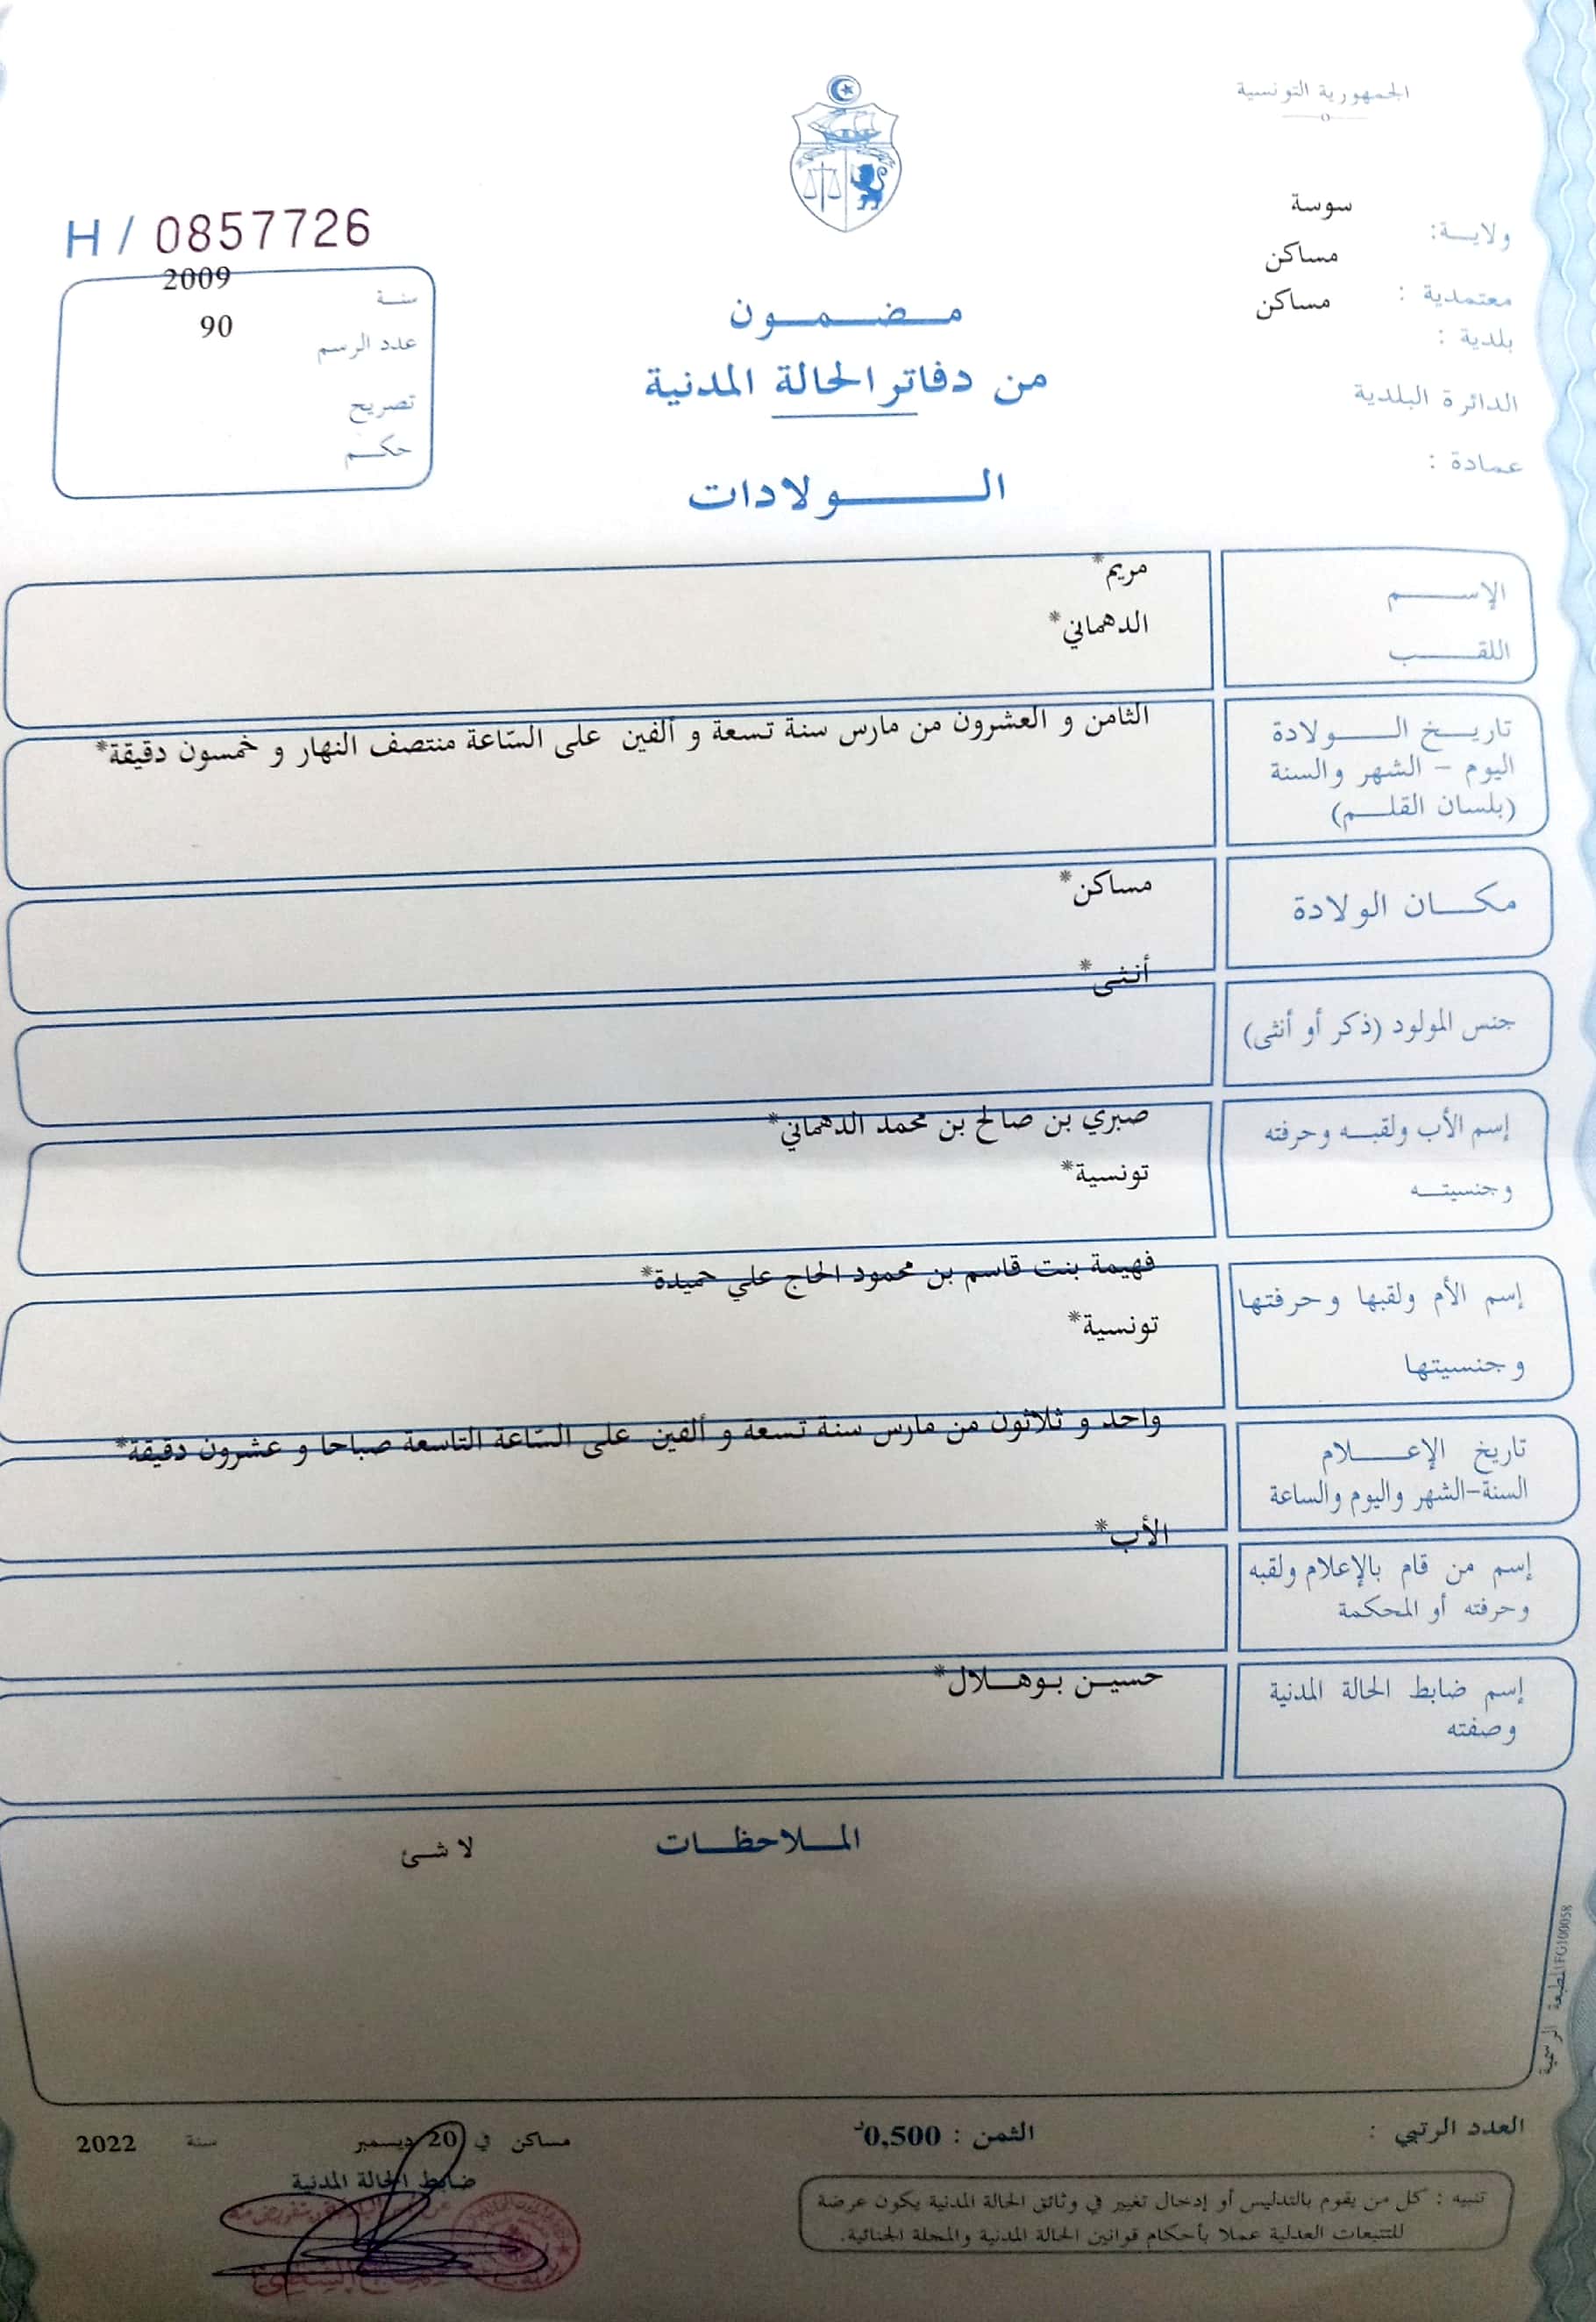 الجمهورية التونسية
ولايـــة: سوسة
معتمدية : مساكن
بلدية : مساكن
الدائرة البلدية
عمادة :
H / 0857726
سنــة 2009
عدد الرسم 90
تصريح
حكـــم
مـضـمـون
من دفاتر الحالة المدنية
الـــولادات
الإســـم مريم*
اللقـــب الدهماني*
تاريـــخ الـــولادة
اليوم – الشهر والسنة
(بلسان القلـــم)
الثامن و العشرون من مارس سنة تسعة و ألفين على السّاعة منتصف النهار و خمسون دقيقة*
مكـــان الولادة مساكن*
جنس المولود (ذكر أو أنثى) أنثى*
إسم الأب ولقبــه وحرفته صبري بن صالح بن محمد الدهماني*
وجنسيتــه تونسية*
إسم الأم ولقبها وحرفتها فهيمة بنت قاسم بن محمود الحاج علي حميدة*
وجنسيتها تونسية*
تاريخ الإعـــلام
السنة-الشهر واليوم والساعة
واحد و ثلاثون من مارس سنة تسعة و ألفين على السّاعة التاسعة صباحا و عشرون دقيقة*
إسم من قام بالإعلام ولقبه
وحرفته أو المحكمة
الأب*
إسم ضابط الحالة المدنية
وصفته
حسيـن بـوهـلال*
المـلاحظـات
لا شئ
المطبعة الرسمية FG100058
العدد الرتبي :
الثمن : 0,500د
مساكن في 20 ديسمبر سنة 2022
ضابط الحالة المدنية
تنبيه : كل من يقوم بالتدليس أو إدخال تغيير في وثائق الحالة المدنية يكون عرضة
للتتبعات العدلية عملا بأحكام قوانين الحالة المدنية والمجلة الجنائية.